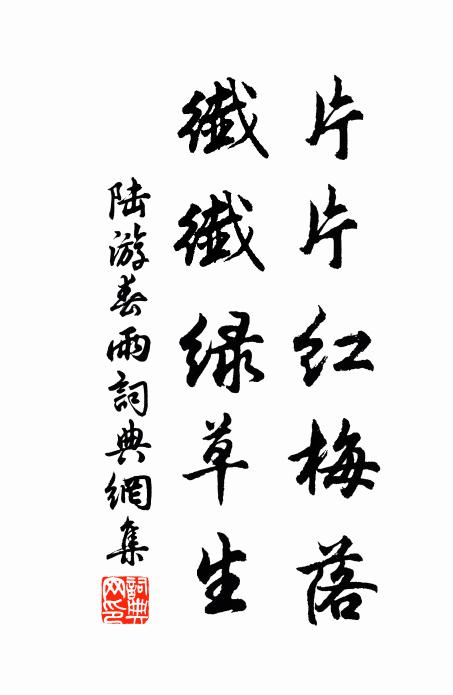 片片红梅落
纖纖绿草生
陆游春雨詞典網集
詞典网印